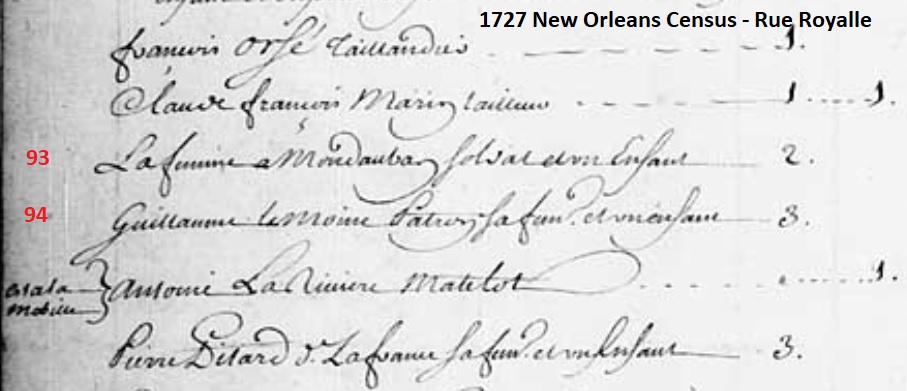 1727 New Orleans Census - Rue Royalle
françois orfé Taillandier 1.
Claude françois Marin tailleur 1 1.
93 La femme a Mondauban soldat et un Enfant 2.
94 Guillaume le Moine Patron sa fem.e et un enfant 3.
est a la
mobille
Antoine La Riviere Matelot 1.
Pierre Pitard d. Lafrance sa fem.e et un Enfant 3.